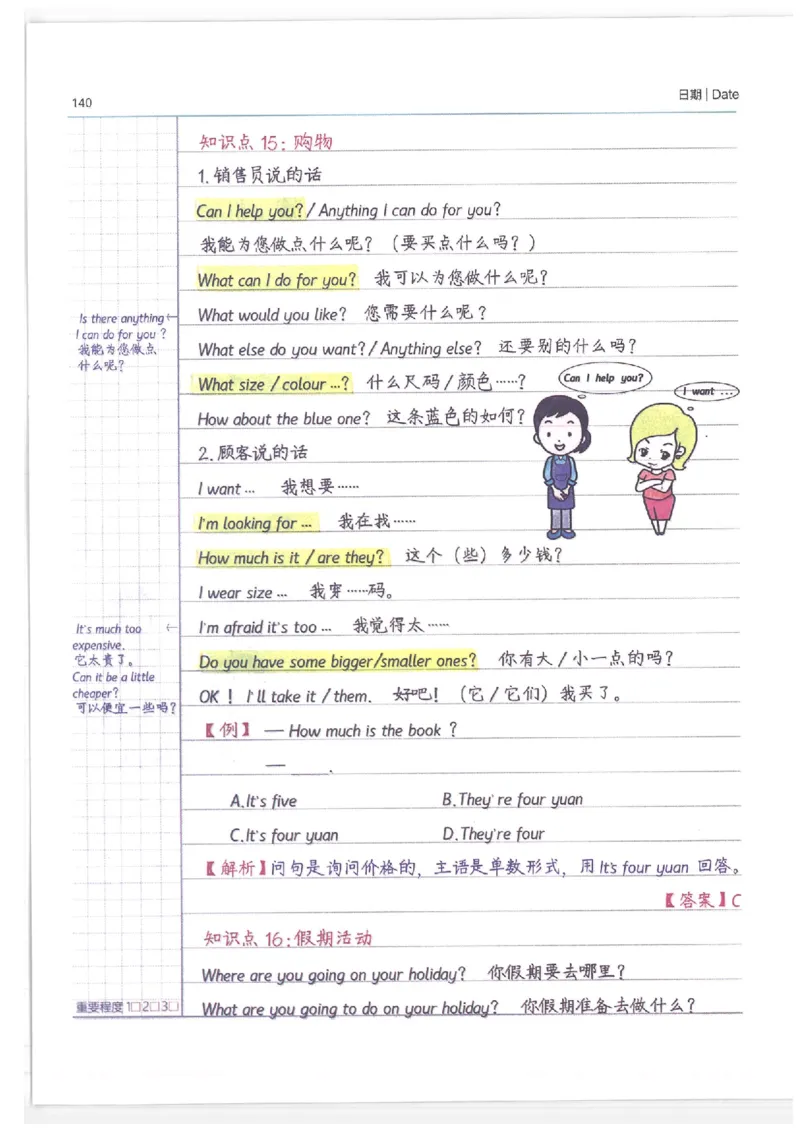 140
日期 | Date
知识点 15: 购物
1. 销售员说的话
Can I help you? / Anything I can do for you?
我能为您做点什么呢? (要买点什么吗?)
What can I do for you? 我可以为您做什么呢?
Is there anything ←
I can do for you ?
我能为您做点
什么呢?
What would you like? 您需要什么呢?
What else do you want? / Anything else? 还要别的什么吗?
What size / colour ...? 什么尺码 / 颜色……?
Can I help you?
I want ...
How about the blue one? 这条蓝色的如何?
2. 顾客说的话
I want ... 我想要……
I'm looking for ... 我在找……
How much is it / are they? 这个 (些) 多少钱?
I wear size ... 我穿……码。
It's much too ←
expensive.
它太贵了。
Can it be a little
cheaper?
可以便宜一些吗?
I'm afraid it's too ... 我觉得太……
Do you have some bigger/smaller ones? 你有大 / 小一点的吗?
OK ! I'll take it / them. 好吧! (它 / 它们) 我买了。
【例】 — How much is the book ?
— ____.
A. It's five B. They're four yuan
C. It's four yuan D. They're four
【解析】问句是询问价格的, 主语是单数形式, 用 It's four yuan 回答。
【答案】C
知识点 16: 假期活动
Where are you going on your holiday? 你假期要去哪里?
What are you going to do on your holiday? 你假期准备去做什么?
重要程度 1□2□3□